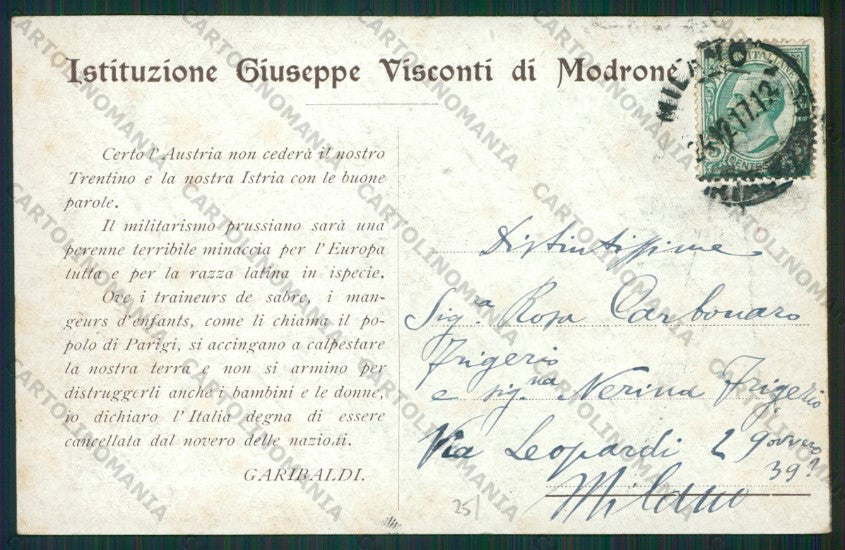 Istituzione Giuseppe Visconti di Modrone
Certo l'Austria non cederà il nostro
Trentino e la nostra Istria con le buone
parole.
Il militarismo prussiano sarà una
perenne terribile minaccia per l'Europa
tutta e per la razza latina in ispecie.
Ove i traineurs de sabre, i man-
geurs d'enfants, come li chiama il po-
polo di Parigi, si accingano a calpestare
la nostra terra e non si armino per
distruggerli anche i bambini e le donne,
io dichiaro l'Italia degna di essere
cancellata dal novero delle nazioni.
GARIBALDI.
MILANO
ITALIANE
CENT
Distintissime
Sig.ra Rosa Carbonaro
Frigerio
e sig.na Nerina Frigerio
Via Leopardi 2
39
Milano
25/
CARTOLINOMANIA